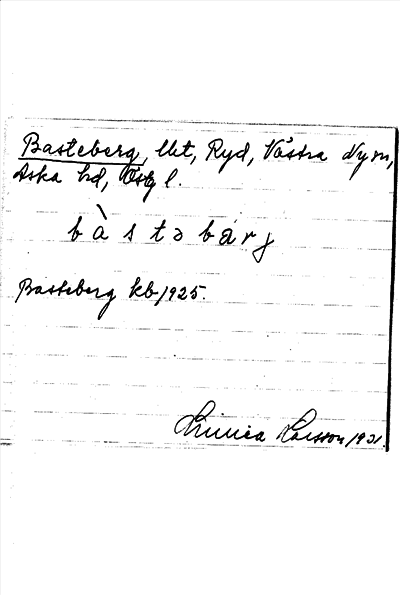 Basteberg, lht, Ryd, Västra Ny sn,
Aska hd, Östg l.
bàstəbärj
Basteberg kb 1925.
Linnea Larsson 192.